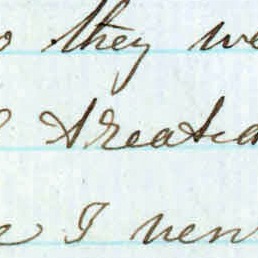 they we
treated
I ven